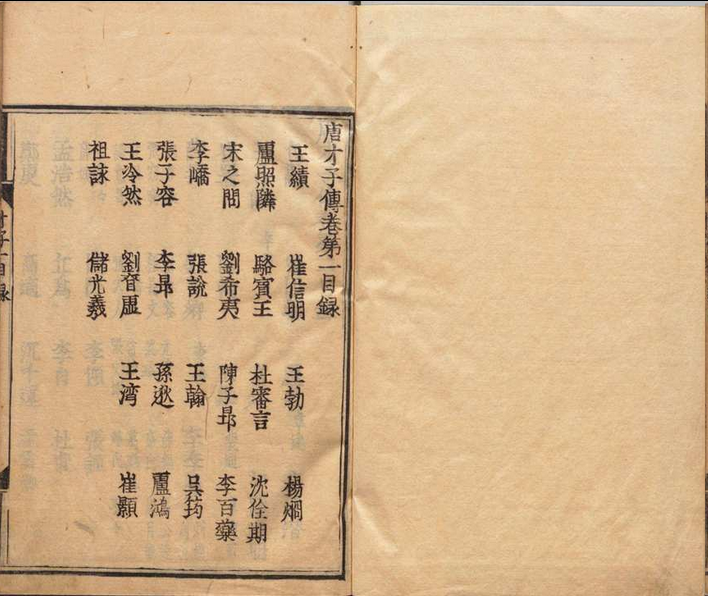 唐才子傳卷第一目録
王績 崔信明 王勃 楊烱
盧照隣 駱賓王 杜審言 沈佺期
宋之問 劉希夷 陳子昻 李百藥
李嶠 張說 王翰 吳筠
張子容 李昻 孫逖 盧鴻
王泠然 劉眘虛 王湾 崔顥
祖詠 儲光羲
才子一目録